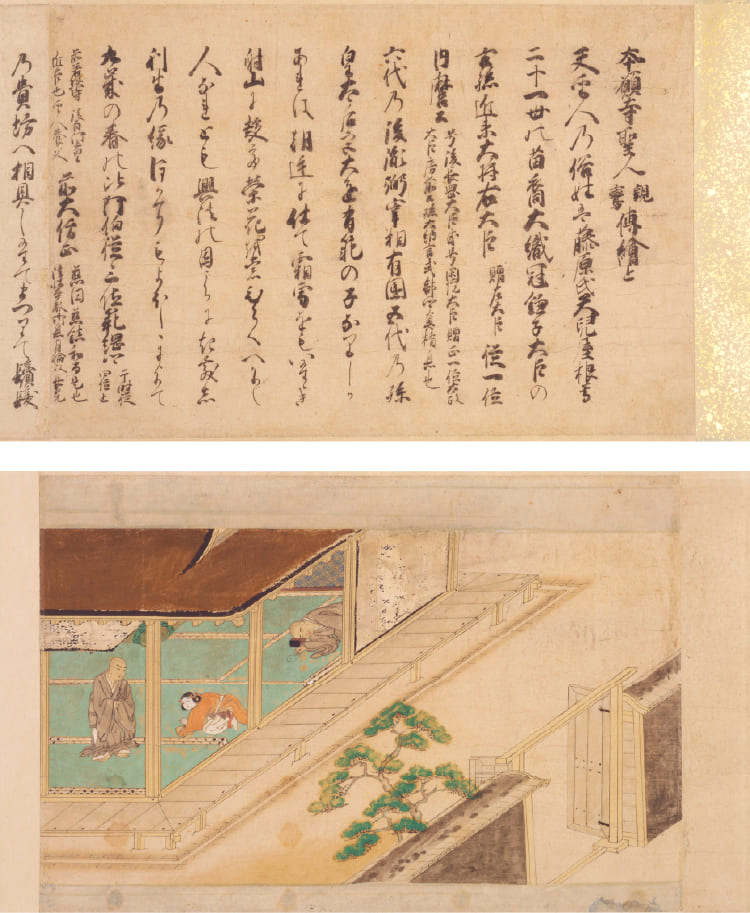 本願寺聖人親鸞傳繪上
夫聖人乃俗姓者藤原氏天兒屋根尊
二十一世の苗裔大織冠鎌子大臣の
玄孫近衛大将右大臣 贈左大臣 従一位
内麿公 号後長岡大臣或号閑院大臣贈正一位太政
大臣房前公孫大納言式部卿真楯息也
六代乃後胤弼宰相有國五代乃孫
皇太后宮大進有範の子なりしか
あれは朝廷に仕て霜雪をもいたゝき
射山に趍て榮花をもひらくへかりし
人なれとも興法の因うちにきさし
利生乃縁ほかにもよほしゝによりて
九歳の春の比阿伯従三位範綱卿 于時従
四位上
前若狭守 後白河上皇
近臣也 聖人養父 前大僧正 慈円慈鎮和尚是也
法性寺殿御息月輪殿長兄
乃貴坊へ相具したてまつりて鬢髪